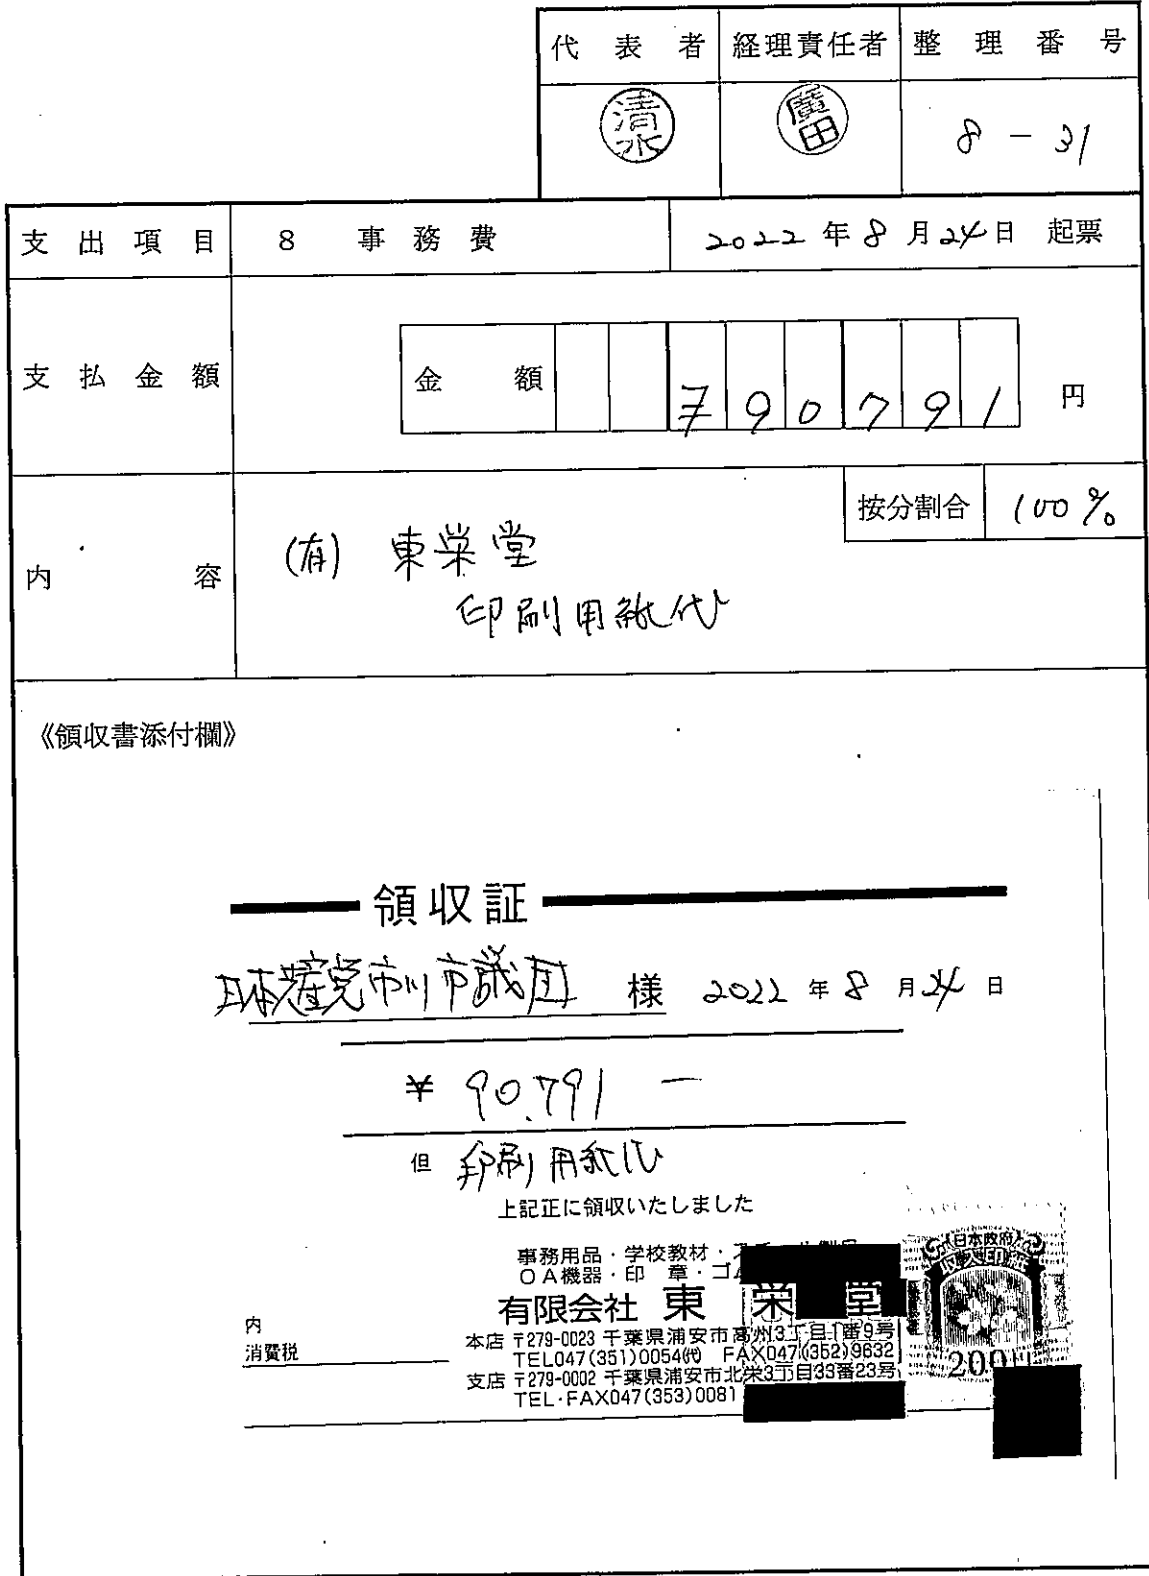 代表者 経理責任者 整理番号
清水 廣田 8-31
支出項目 8 事務費 2022年8月24日 起票
支払金額 金額 ¥90791 円
按分割合 100%
内容 (有) 東栄堂
印刷用紙代
《領収書添付欄》
領収証
日本共産党市川市議団 様 2022年8月24日
¥ 90.791 ―
但 印刷用紙代
上記正に領収いたしました
事務用品・学校教材・
OA機器・印 章・ゴム
有限会社 東栄堂
内
消費税
本店 〒279-0023 千葉県浦安市高州3丁目1番9号
TEL047(351)0054㈹ FAX047(352)9632
支店 〒279-0002 千葉県浦安市北栄3丁目33番23号
TEL・FAX047(353)0081
日本政府
収入印紙
200円